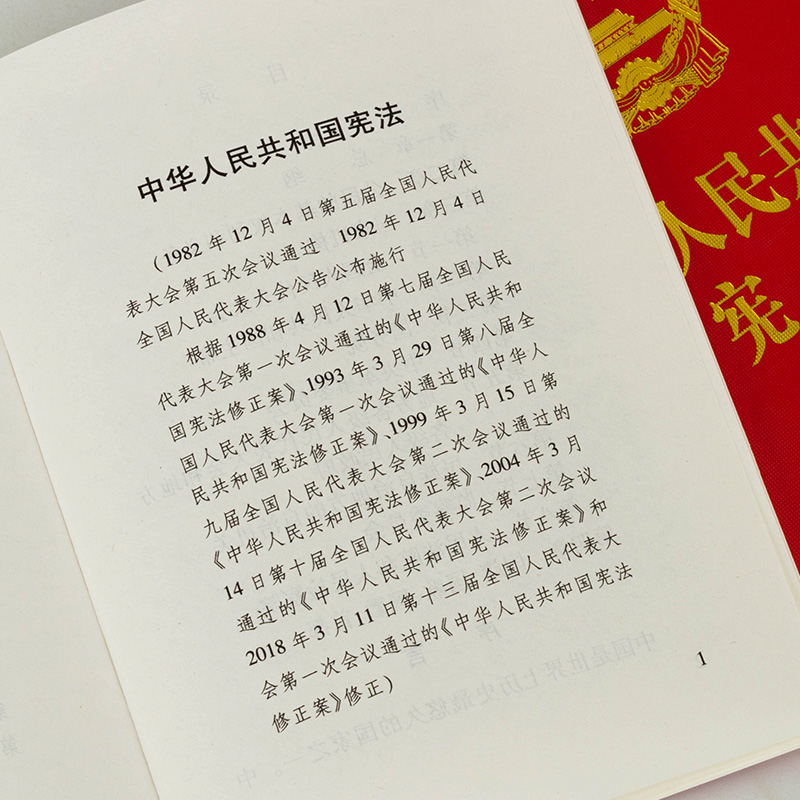 中华人民共和国宪法
（1982 年 12 月 4 日第五届全国人民代
表大会第五次会议通过 1982 年 12 月 4 日
全国人民代表大会公告公布施行
根据 1988 年 4 月 12 日第七届全国人民
代表大会第一次会议通过的《中华人民共和
国宪法修正案》、1993 年 3 月 29 日第八届全
国人民代表大会第一次会议通过的《中华人
民共和国宪法修正案》、1999 年 3 月 15 日第
九届全国人民代表大会第二次会议通过的
《中华人民共和国宪法修正案》、2004 年 3 月
14 日第十届全国人民代表大会第二次会议
通过的《中华人民共和国宪法修正案》和
2018 年 3 月 11 日第十三届全国人民代表大
会第一次会议通过的《中华人民共和国宪法
修正案》修正）
1
人民共
宪